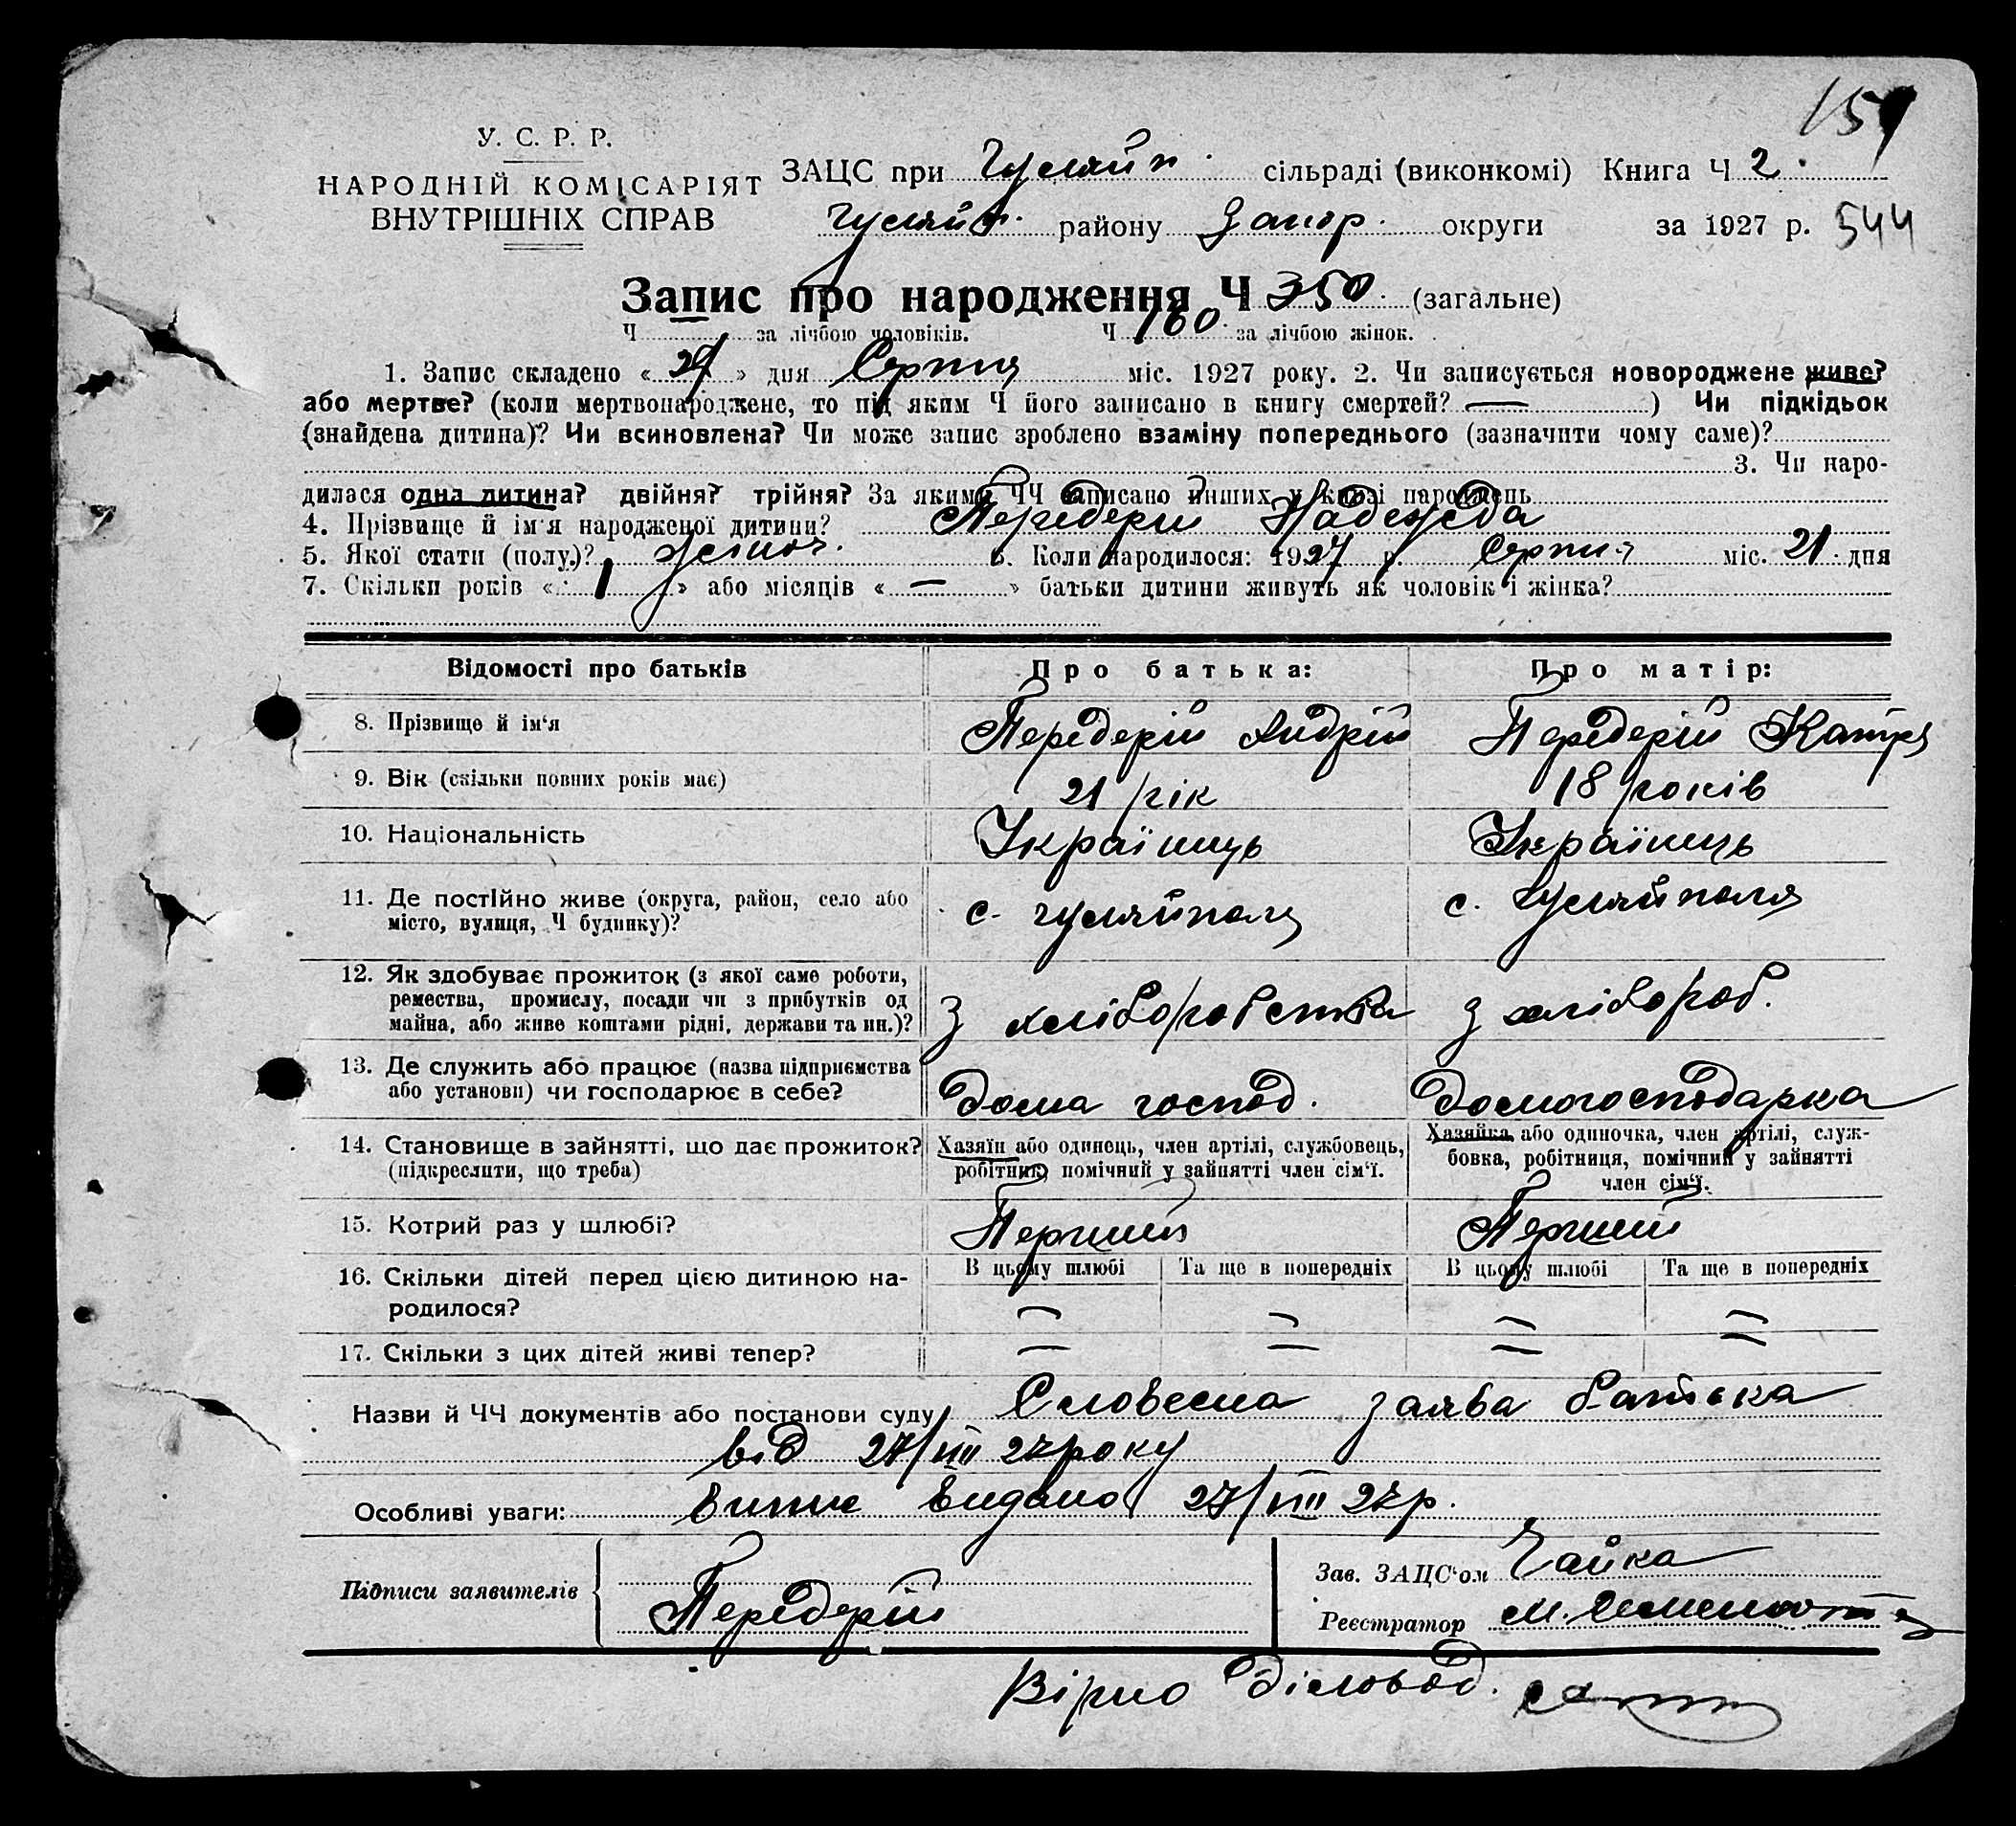 159
У. С. Р. Р.
НАРОДНІЙ КОМІСАРІЯТ
ВНУТРІШНІХ СПРАВ
ЗАЦС при Гуляйп. сільраді (виконкомі) Книга Ч 2.
Гуляйп. району Запор. округи за 1927 р. 544
Запис про народження Ч 350 (загальне)
Ч за лічбою чоловіків. Ч 160 за лічбою жінок.
1. Запис складено « 27 » дня Серпня міс. 1927 року. 2. Чи записується новороджене живе?
або мертве? (коли мертвонароджене, то під яким Ч його записано в книгу смертей? — ) Чи підкідьок
(знайдена дитина)? Чи всиновлена? Чи може запис зроблено взаміну попереднього (зазначити чому саме)?
3. Чи наро-
дилася одна дитина? двійня? трійня? За якими ЧЧ записано инших у книзі народжень
4. Прізвище й ім'я народженої дитини? Передерій Надежда
5. Якої стати (полу.)? жіноч. 6. Коли народилося: 1927 р. Серпня міс. 21 дня
7. Скільки років « 1 » або місяців « — » батьки дитини живуть як чоловік і жінка?
Відомості про батьків Про батька: Про матір:
8. Прізвище й ім'я Передерій Андрій Передерій Катря
9. Вік (скільки повних років має) 21 рік 18 років
10. Національність Українець Українець
11. Де постійно живе (округа, район, село або
місто, вулиця, Ч будинку)? с. Гуляйполя с. Гуляйполя
12. Як здобуває прожиток (з якої саме роботи,
ремества, промислу, посади чи з прибутків од
майна, або живе коштами рідні, держави та ин.)? З хліборобства з хлібороб.
13. Де служить або працює (назва підприємства
або установи) чи господарює в себе? Дома господ. Домогосподарка
14. Становище в зайнятті, що дає прожиток?
(підкреслити, що треба)
Хазяїн або одинець, член артілі, службовець,
робітник, помічний у зайнятті член сім'ї.
Хазяйка або одиночка, член артілі, служ-
бовка, робітниця, помічний у зайнятті
член сім'ї.
15. Котрий раз у шлюбі? Перший Перший
16. Скільки дітей перед цією дитиною на-
родилося?
В цьому шлюбі Та ще в попередніх В цьому шлюбі Та ще в попередніх
— — — —
17. Скільки з цих дітей живі тепер? — — — —
Назви й ЧЧ документів або постанови суду Словесна заява батька
від 27/VIII 27 року
Особливі уваги: Витяг видано 27/VIII 27 р.
Підписи заявителів Передерій
Зав. ЗАЦС'ом Чайка
Реєстратор М.
Вірно Діловод.